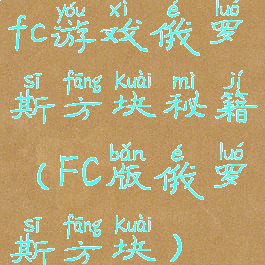 yóu xì é luó
fc游戏俄罗
sī fāng kuài mì jí
斯方块秘籍
bǎn é luó
(FC版俄罗
sī fāng kuài
斯方块)